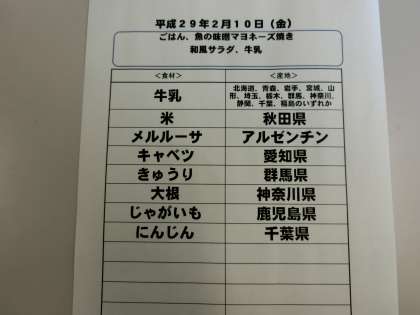 平成29年2月10日（金）
ごはん、魚の味噌マヨネーズ焼き
和風サラダ、牛乳
＜食材＞ ＜産地＞
牛乳 北海道、青森、岩手、宮城、山
形、埼玉、栃木、群馬、神奈川、
静岡、千葉、福島のいずれか
米 秋田県
メルルーサ アルゼンチン
キャベツ 愛知県
きゅうり 群馬県
大根 神奈川県
じゃがいも 鹿児島県
にんじん 千葉県